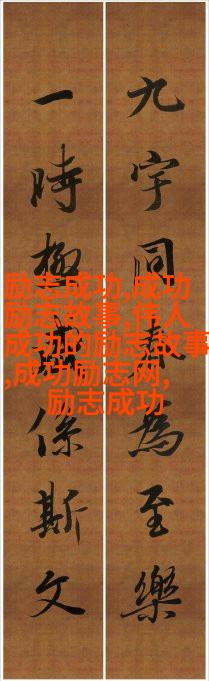 九宇同春為至樂
一時極係斯文
励志成功,成功
励志故事,伟人
成功的励志故事
,成功励志网,
励志成功